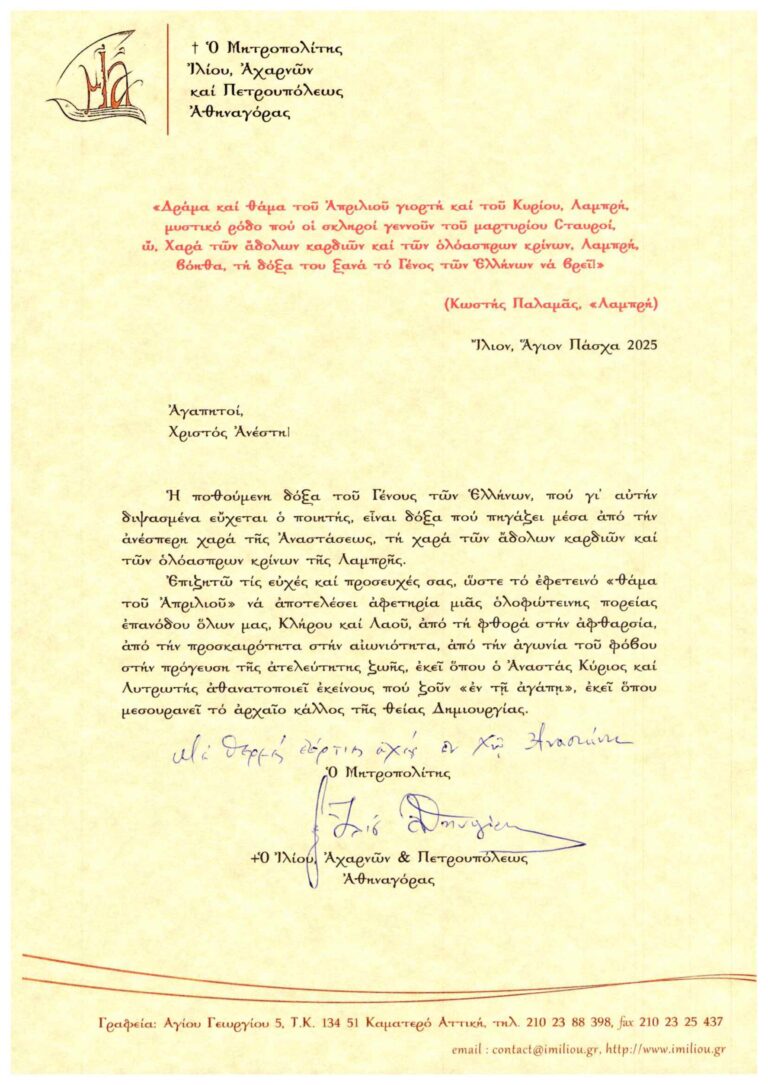 † Ὁ Μητροπολίτης
Ἰλίου, Ἀχαρνῶν
καί Πετρουπόλεως
Ἀθηναγόρας
«Δράμα καί θάμα τοῦ Ἀπριλιοῦ γιορτή καί τοῦ Κυρίου, Λαμπρή,
μυστικό ρόδο πού οἱ σκληροί γεννοῦν τοῦ μαρτυρίου Σταυροί,
ὦ, Χαρά τῶν ἄδολων καρδιῶν καί τῶν ὁλόασπρων κρίνων, Λαμπρή,
βόηθα, τή δόξα του ξανά τό Γένος τῶν Ἑλλήνων νά βρεῖ!»
(Κωστής Παλαμᾶς, «Λαμπρή)
Ἴλιον, Ἅγιον Πάσχα 2025
Ἀγαπητοί,
Χριστός Ἀνέστη!
Ἡ ποθούμενη δόξα τοῦ Γένους τῶν Ἑλλήνων, πού γι' αὐτήν
διψασμένα εὔχεται ὁ ποιητής, εἶναι δόξα πού πηγάζει μέσα ἀπό τήν
ἀνέσπερη χαρά τῆς Ἀναστάσεως, τή χαρά τῶν ἄδολων καρδιῶν καί
τῶν ὁλόασπρων κρίνων τῆς Λαμπρῆς.
Ἐπιζητῶ τίς εὐχές καί προσευχές σας, ὥστε τό ἐφετεινό «θάμα
τοῦ Ἀπριλιοῦ» νά ἀποτελέσει ἀφετηρία μιᾶς ὁλοφώτεινης πορείας
ἐπανόδου ὅλων μας, Κλήρου καί Λαοῦ, ἀπό τή φθορά στήν ἀφθαρσία,
ἀπό τήν προσκαιρότητα στήν αἰωνιότητα, ἀπό τήν ἀγωνία τοῦ φόβου
στήν πρόγευση τῆς ἀτελεύτητης ζωῆς, ἐκεῖ ὅπου ὁ Ἀναστάς Κύριος καί
Λυτρωτής ἀθανατοποιεῖ ἐκείνους πού ζοῦν «ἐν τῇ ἀγάπῃ», ἐκεῖ ὅπου
μεσουρανεῖ τό ἀρχαῖο κάλλος τῆς θείας Δημιουργίας.
Ὁ Μητροπολίτης
+Ὁ Ἰλίου, Ἀχαρνῶν & Πετρουπόλεως
Ἀθηναγόρας
Γραφεία: Αγίου Γεωργίου 5, Τ.Κ. 134 51 Καματερό Αττική, τηλ. 210 23 88 398, fax 210 23 25 437
email : contact@imiliou.gr, http://www.imiliou.gr